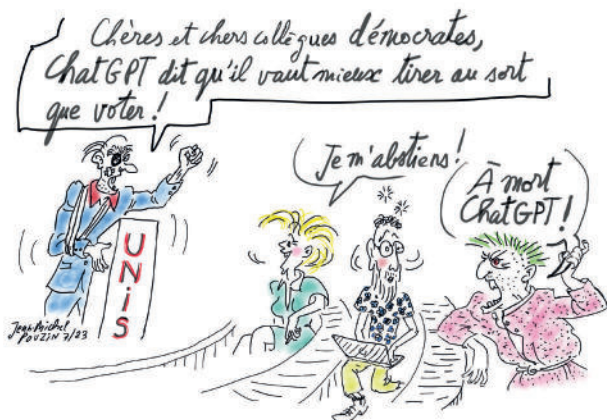 Chères et chers collègues démocrates,
ChatGPT dit qu'il vaut mieux tirer au sort
que voter !
Je m'abstiens !
À mort
ChatGPT !
UNIS
Jean-Michel
POUZIN 7/23